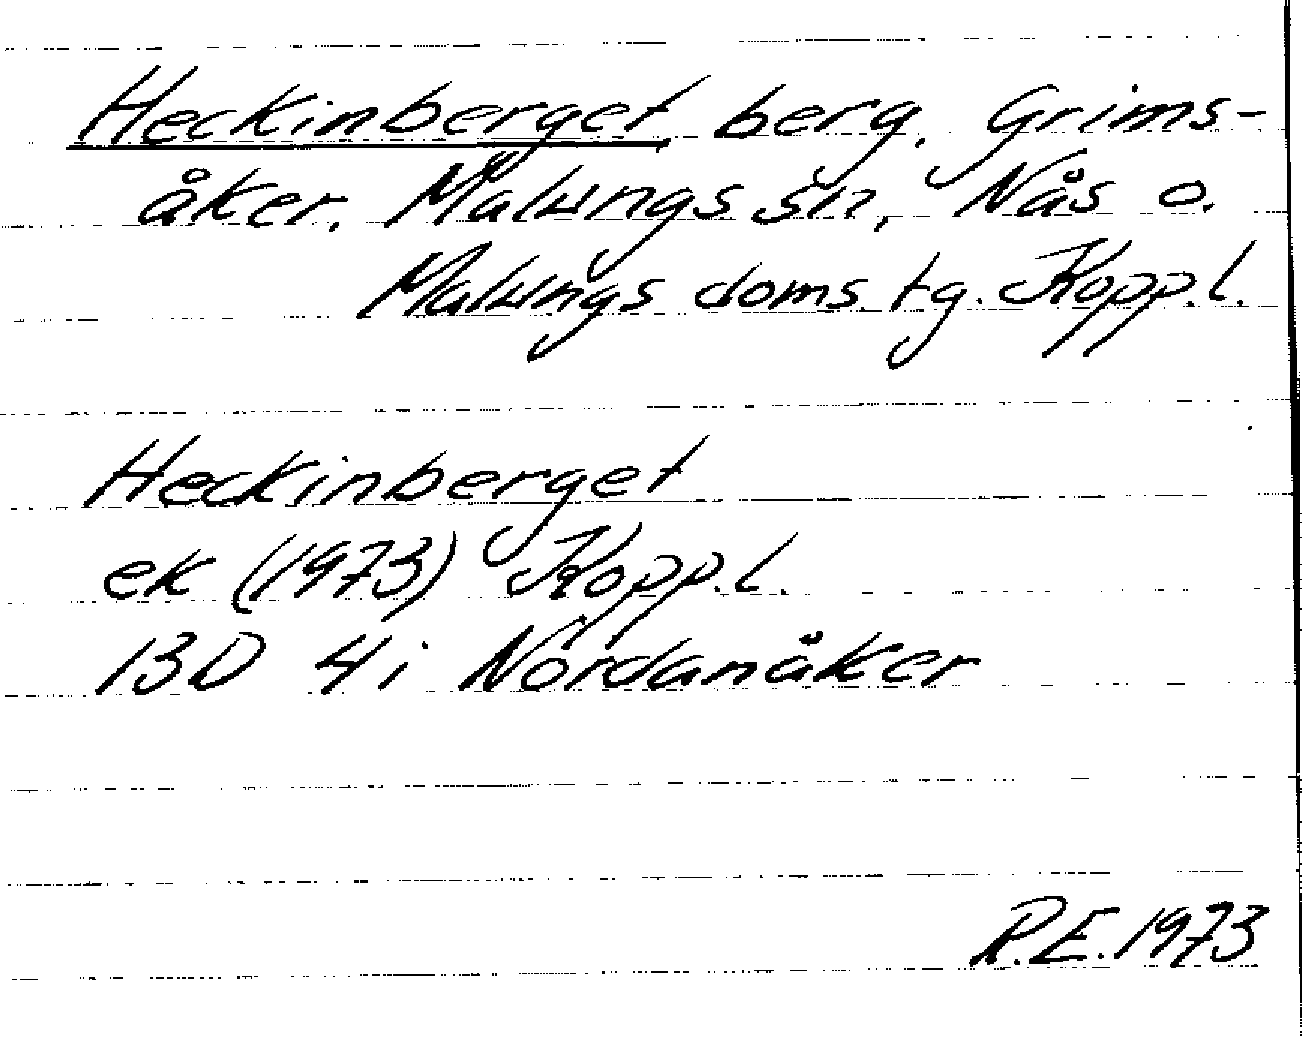 Heckinberget, berg, Grims-
åker, Malungs sn, Nås o.
Malungs doms. tg. Kopp.l.
Heckinberget
ek (1973) Kopp.l.
13D 4i Nordanåker
R.E. 1973